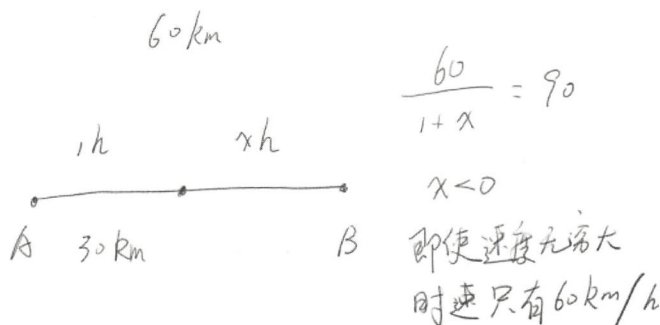 60km
1h xh
A 30km B
60/(1+x) = 90
x<0
即使速度无穷大
时速只有60km/h